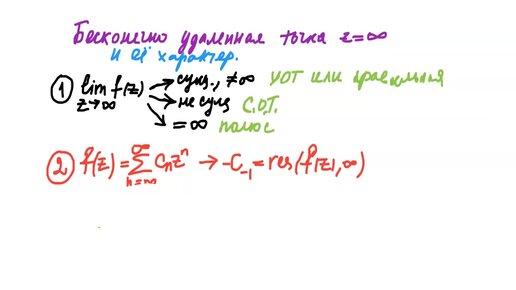 Бесконечно удаленная точка z=∞
и её характер.
① lim f(z) z→∞ → сущ., ≠∞ УОТ или правильная
→ не сущ С.О.Т.
↘ =∞ полюс
② f(z)=∑ cₙzⁿ → -c₋₁=res(f(z),∞)